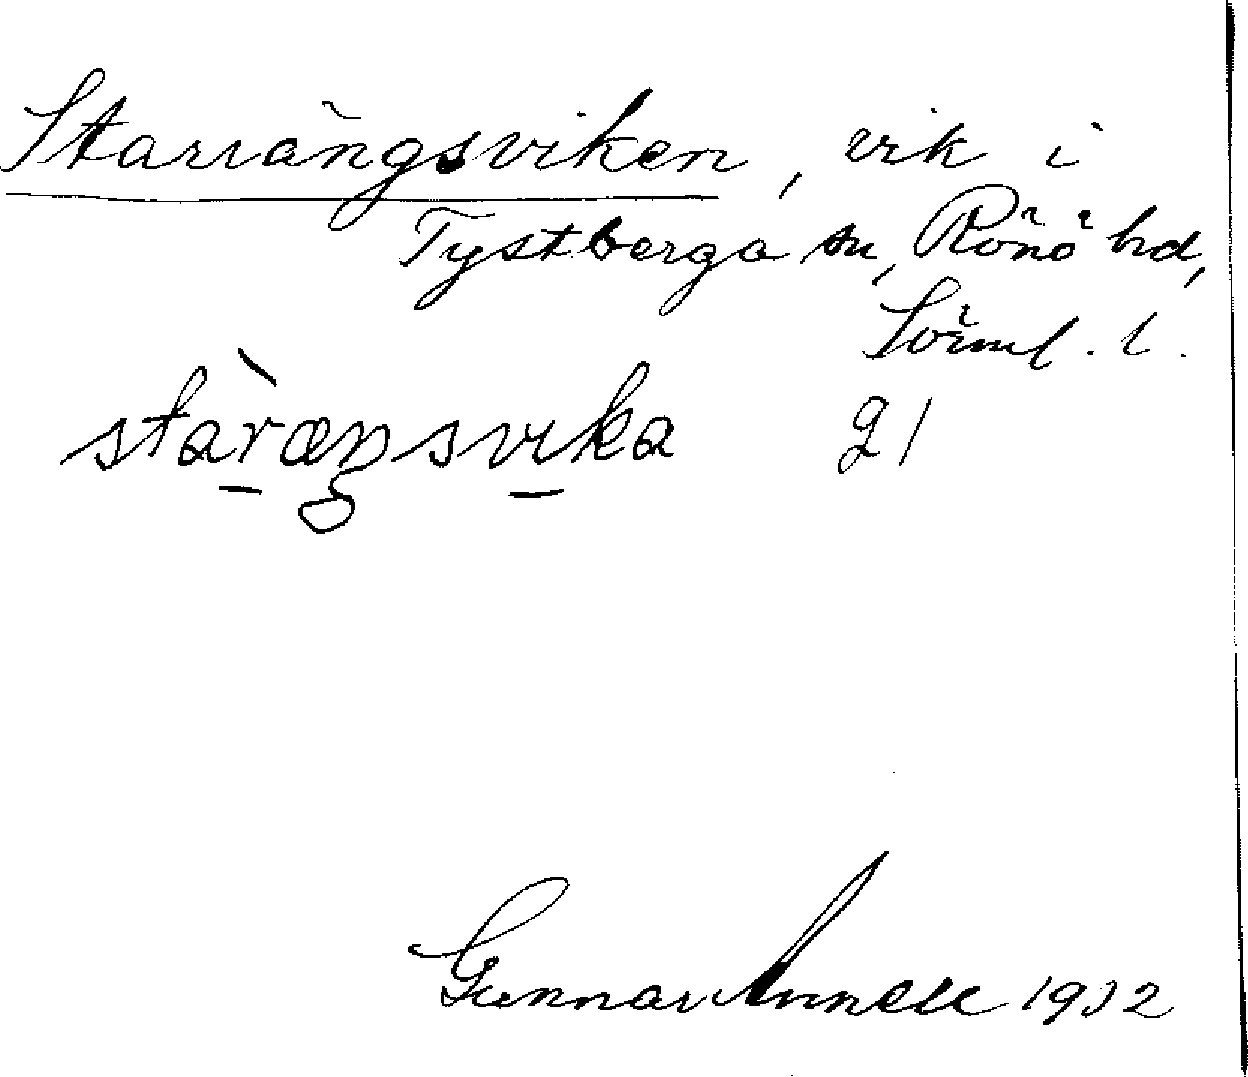 Starrängsviken, vik i
Tystberga sn, Rönö hd,
Sörml. l.
staræŋsvika g1
Gunnar Annell 1932